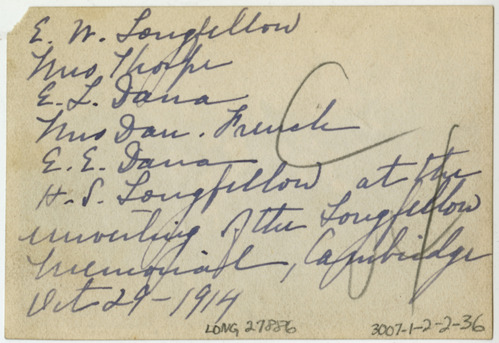 E. W. Longfellow
Mrs Thorpe
E. L. Dana
Mrs Dan. French
E. E. Dana
H. S. Longfellow at the
unveiling of the Longfellow
Memorial, Cambridge
Oct 29 - 1914
LONG 27886 3007-1-2-2-36